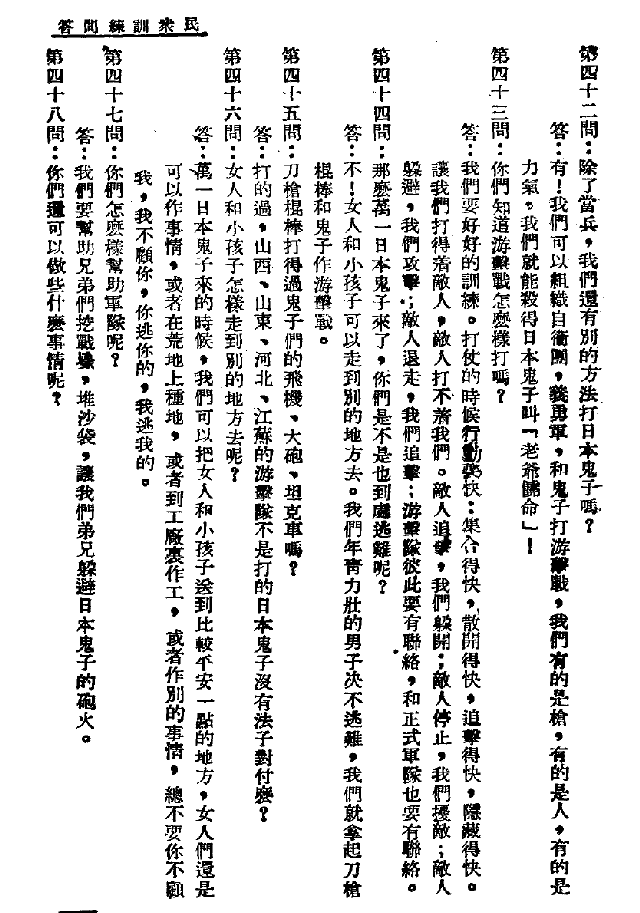 民衆訓練問答
第四十二問：除了當兵，我們還有別的方法打日本鬼子嗎？
答：有！我們可以組織自衛團，義勇軍，和鬼子打游擊戰，我們有的是槍，有的是人，有的是
力氣。我們就能殺得日本鬼子叫「老爺饒命」！
第四十三問：你們知道游擊戰怎麼樣打嗎？
答：我們要好好的訓練。打仗的時候行動要快：集合得快，散開得快，追擊得快，隱藏得快。
讓我們打得着敵人，敵人打不着我們。敵人追擊，我們躱開；敵人停止，我們擾敵；敵人
躱避，我們攻擊；敵人退走，我們追擊；游擊隊彼此要有聯絡，和正式軍隊也要有聯絡。
第四十四問：那麼萬一日本鬼子來了，你們是不是也到處逃難呢？
答：不！女人和小孩子可以走到別的地方去。我們年靑力壯的男子决不逃難，我們就拿起刀槍
棍棒和鬼子作游擊戰。
第四十五問：刀槍棍棒打得過鬼子們的飛機、大砲、坦克車嗎？
答：打的過，山西、山東、河北、江蘇的游擊隊不是打的日本鬼子沒有法子對付麼？
第四十六問：女人和小孩子怎樣走到別的地方去呢？
答：萬一日本鬼子來的時候，我們可以把女人和小孩子送到比較平安一點的地方，女人們還是
可以作事情，或者在荒地上種地，或者到工廠裏作工，或者作別的事情，總不要你不顧
我，我不顧你，你逃你的，我逃我的。
第四十七問：你們怎麼樣幫助軍隊呢？
答：我們要幫助兄弟們挖戰壕，堆沙袋，讓我們弟兄躱避日本鬼子的砲火。
第四十八問：你們還可以做些什麼事情呢？